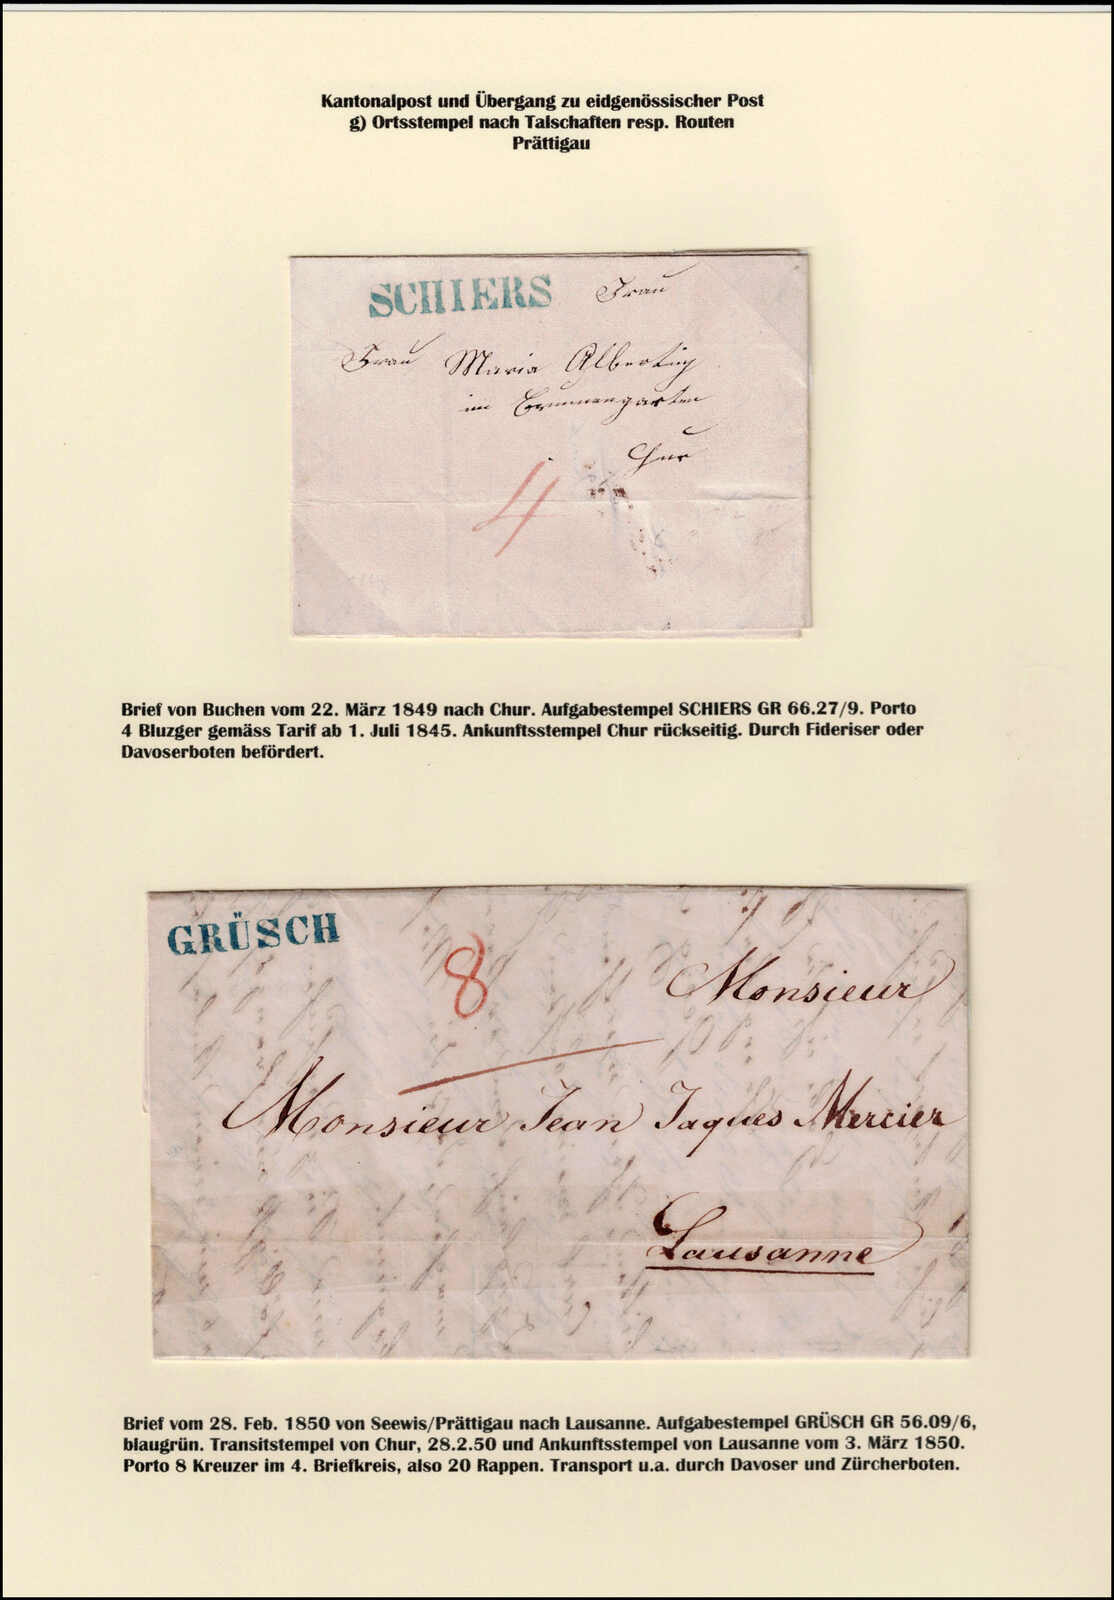 Kantonalpost und Übergang zu eidgenössischer Post
g) Ortsstempel nach Talschaften resp. Routen
Prättigau
SCHIERS
Frau
Frau Maria Albertin
im Brunnengarten
Chur
4
Brief von Buchen vom 22. März 1849 nach Chur. Aufgabestempel SCHIERS GR 66.27/9. Porto
4 Bluzger gemäss Tarif ab 1. Juli 1845. Ankunftsstempel Chur rückseitig. Durch Fideriser oder
Davoserboten befördert.
GRÜSCH
8
Monsieur
Monsieur Jean Jaques Mercier
Lausanne
Brief vom 28. Feb. 1850 von Seewis/Prättigau nach Lausanne. Aufgabestempel GRÜSCH GR 56.09/6,
blaugrün. Transitstempel von Chur, 28.2.50 und Ankunftsstempel von Lausanne vom 3. März 1850.
Porto 8 Kreuzer im 4. Briefkreis, also 20 Rappen. Transport u.a. durch Davoser und Zürcherboten.